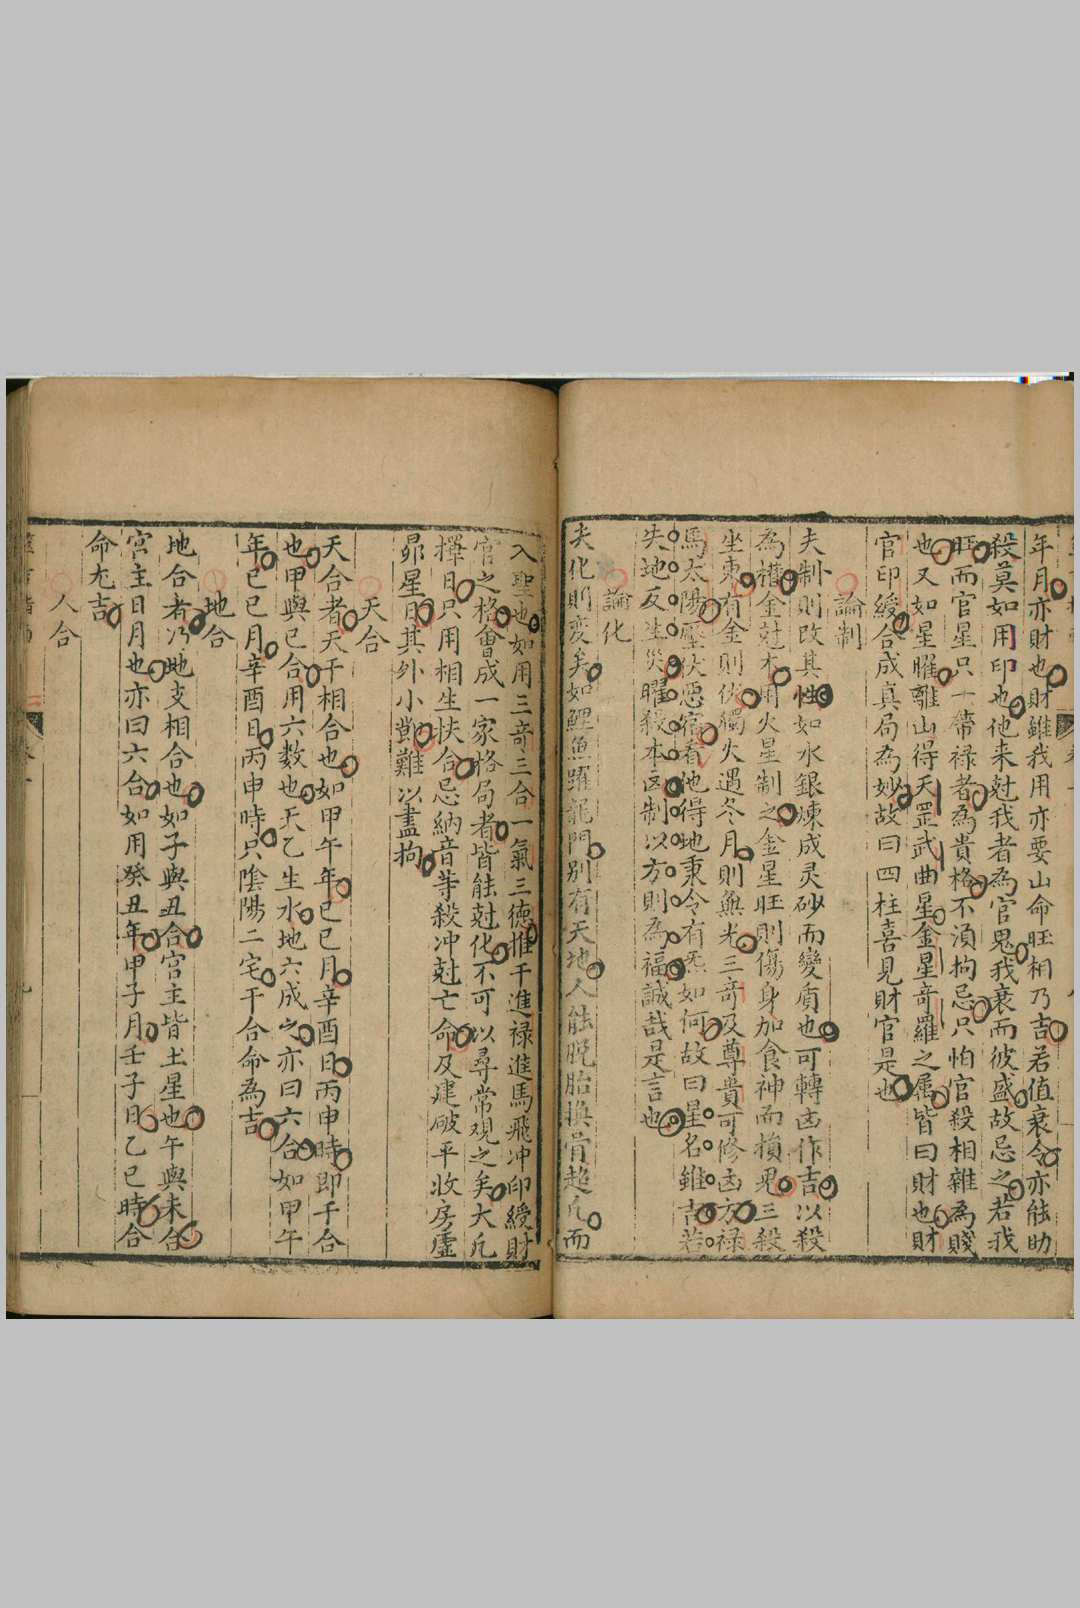 年月亦財也財雖我用亦要山命旺相乃吉若值衰令亦能助
殺莫如用印也他来尅我者為官鬼我衰而彼盛故忌之若我
旺而官星只一帶禄者為貴格不須拘忌只怕官殺相雜為賤
也又如星曜離山得天罡武曲星金星奇羅之属皆曰財也財
官印綬合成真局為妙故曰四柱喜見財官是也
論制
夫制則改其性如水銀煉成灵砂而變盾也可轉凶作吉以殺
為權金尅木用火星制之金星旺則傷身加食神而損鬼三殺
坐東有金則伏獨火遇冬月則無光三奇及尊貴可修凶方禄
馬太陽壓伏惡看他得地秉令有炁如何故曰星名雖吉若
失地反生災曜殺本凶制以方則為福誠哉是言也
論化
夫化則变矣如鯉魚躍龍門別有天地人能脱胎換骨超凡而
入聖也如用三奇三合一氣三德推干進禄進馬飛冲印綬財
官之格會成一家格局者皆能尅化不可以尋常观之矣大凡
擇日只用相生扶合忌納音等殺冲尅亡命及建破平收房虚
昴星日其外小難以盡拘
天合
天合者天干相合也如甲午年己巳月辛酉日丙申時即干合
也甲與己合用六数也天乙生水地六成之亦曰六合如甲午
年己巳月辛酉日丙申時只陰陽二宅干合命為吉
地合
地合者乃地支相合也如子與丑合宫主皆土星也午與未合
宫主日月也亦曰六合如用癸丑年甲子月壬子日乙巳時合
命尤吉
人合